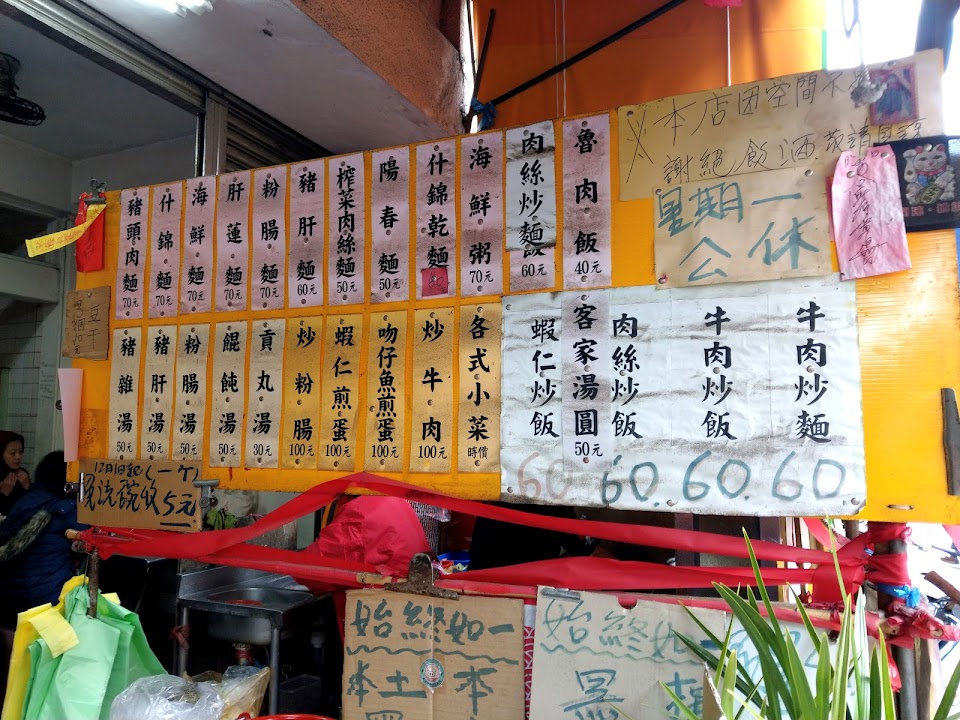 豬頭肉麵 70元
什錦麵 70元
海鮮麵 70元
肝蓮麵 70元
粉腸麵 70元
豬肝麵 60元
榨菜肉絲麵 50元
陽春麵 50元
什錦乾麵
海鮮粥 70元
肉絲炒麵 60元
魯肉飯 40元
※本店因空間不
謝絕飲酒 敬請
星期一
公休
豆干
豬雜湯 50元
豬肝湯 50元
粉腸湯 50元
餛飩湯 50元
貢丸湯 30元
炒粉腸 100元
蝦仁煎蛋 100元
吻仔魚煎蛋 100元
炒牛肉 100元
各式小菜 時價
蝦仁炒飯 60
客家湯圓 50元
肉絲炒飯 60
牛肉炒飯 60
牛肉炒麵 60
12月1日起(一ケ)
免洗碗收5元
始終如一
本土本
始終如